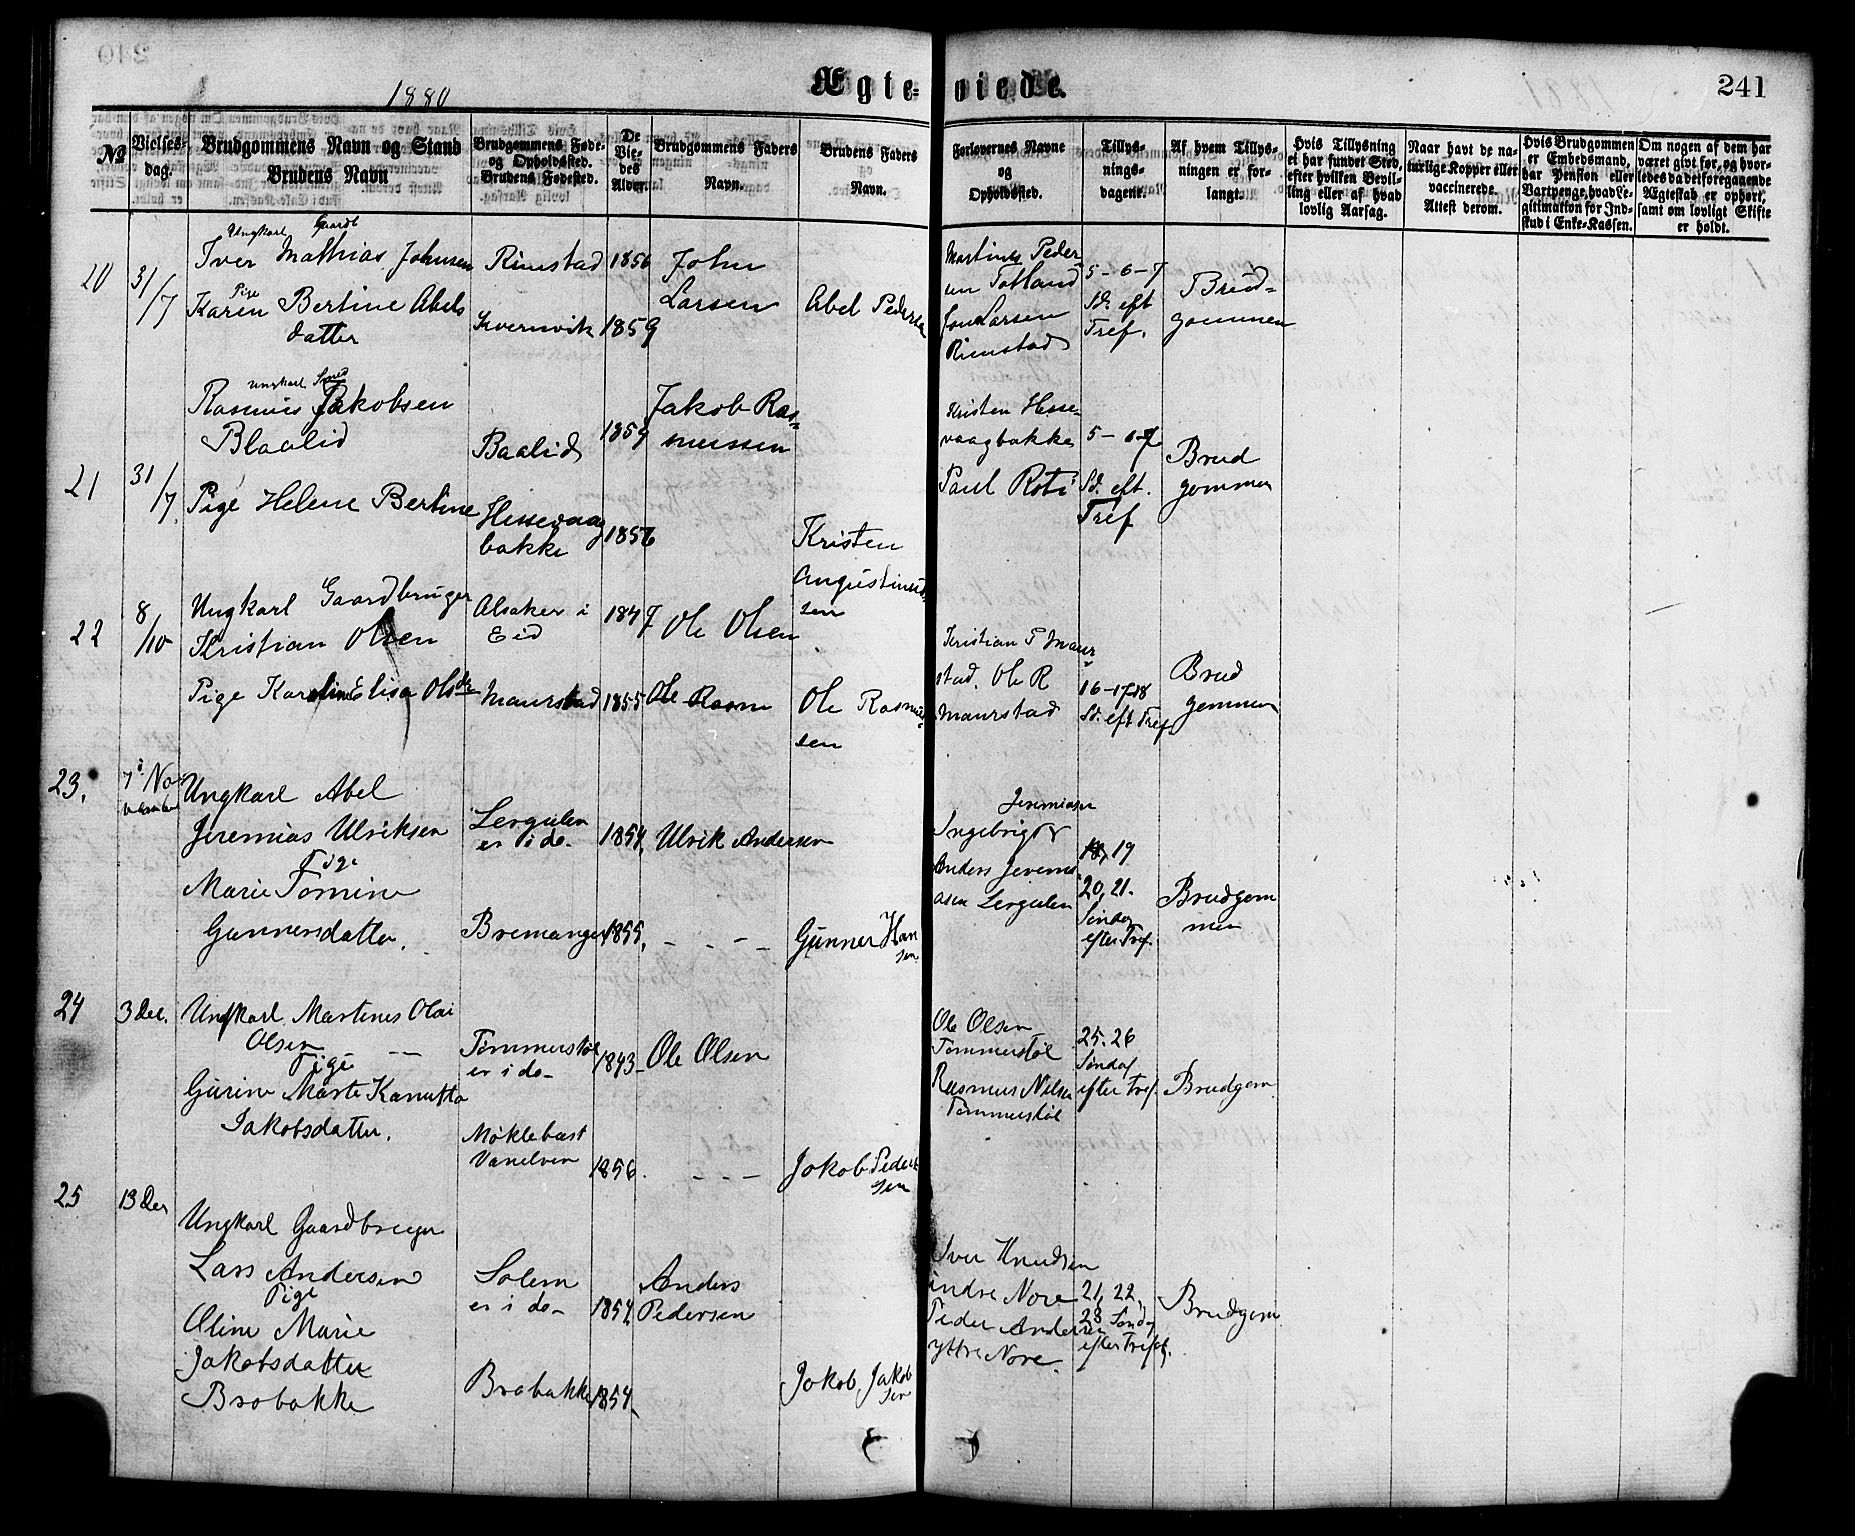 1880
Ægte-viede.
241
№
Vielses-
dag.
Brudgommens Navn og Stand
Brudens Navn
Brudgommens Føde-
og Opholdssted.
Brudens Fødested.
De
Vie-
des
Alder.
Brudgommens Faders
Navn.
Brudens Faders
Navn.
Forlovernes Navne
og
Opholdssted.
Tillys-
nings-
dagene.
Af hvem Tillys-
ningen er for-
langt.
Hvis Tillysning
ei har fundet Sted,
efter hvilken Bevil-
ling eller af hvad
lovlig Aarsag.
Naar havt de na-
turlige Kopper eller
vaccinerede.
Attest derom.
Hvis Brudgommen
er Embedsmand,
har Pension eller
Vartpenge, hvad Le-
gitimation for Ind-
skud i Enke-Kassen.
Om nogen af dem har
været givt før, og hvor-
ledes da det foregaaende
Ægteskab er ophørt,
samt om lovligt Skifte
er holdt.
20
31/7
Ungkarl Gaardb
Iver Mathias Johnsen
Pige
Karen Bertine Abels
datter
Rimstad
Kvernvik
1856
1859
John
Larsen
Abel Pedersen
Martinus Peder
sen Totland
Jon Larsen
Rimstad
5-6-7
Sd. eft
Tref.
Brud-
gommen
21
31/7
Ungkarl Smed
Rasmus Jakobsen
Blaalid
Pige Helene Bertine
Baalid
Hessevaag
bakke
1859
1856
Jakob Ras-
mussen
Kristen
Augustinus
sen
Kristen Hesse-
vaagbakke
Paul Roti
5-6-7
Sd. eft.
Tref
Brud
gommen
22
8/10
Ungkarl Gaardbruger
Kristian Olsen
Pige Karoline Elisa Olsdtr
Alsaker i
Eid
Maurstad
1847
1855
Ole Olsen
Ole Rasm
Ole Rasmus
sen
Kristian P Maur
stad. Ole R
Maurstad
16-17-18
Sd. eft Tref
Brud
gommen
23.
7de No-
vember
Ungkarl Abel
Jeremias Ulriksen
Pige
Marie Tomine
Gunnersdatter.
Lergulen
er i do-
Bremanger
1854.
1855.
Ulrik Andersen
- - - -
Gunner Han
sen
Jeremiasen
Ingebrigt
Anders Jeremi
asen Lergulen
18, 19
20, 21.
Søndag
efter Tref.
Brudgom
men
24
3 Dec.
Ungkarl Martines Olai
Olsen - -
Pige
Gurine Marte Kanutta
Jakobsdatter.
Tømmerstøl
er i do-
Møklebust
Vanelven
1843-
1856.
Ole Olsen
- - -
Jakob Peder
sen
Ole Olsen
Tømmerstøl
Rasmus Nilsen
Tømmerstøl
25. 26
Søndag
efter Tref.
Brudgom
25
13 Dec
Ungkarl Gaardbruger
Lars Andersen
Pige
Oline Marie
Jakobsdatter
Brobakke
Solem
er i do-
Brobakke
1854.
1854.
Anders
Pedersen
Jakob Jakob
sen
Iver Knudsen
indre Nore
Peder Andersen
yttre Nore.
21, 22,
23 Sønd
efter Tref.
Brudgom